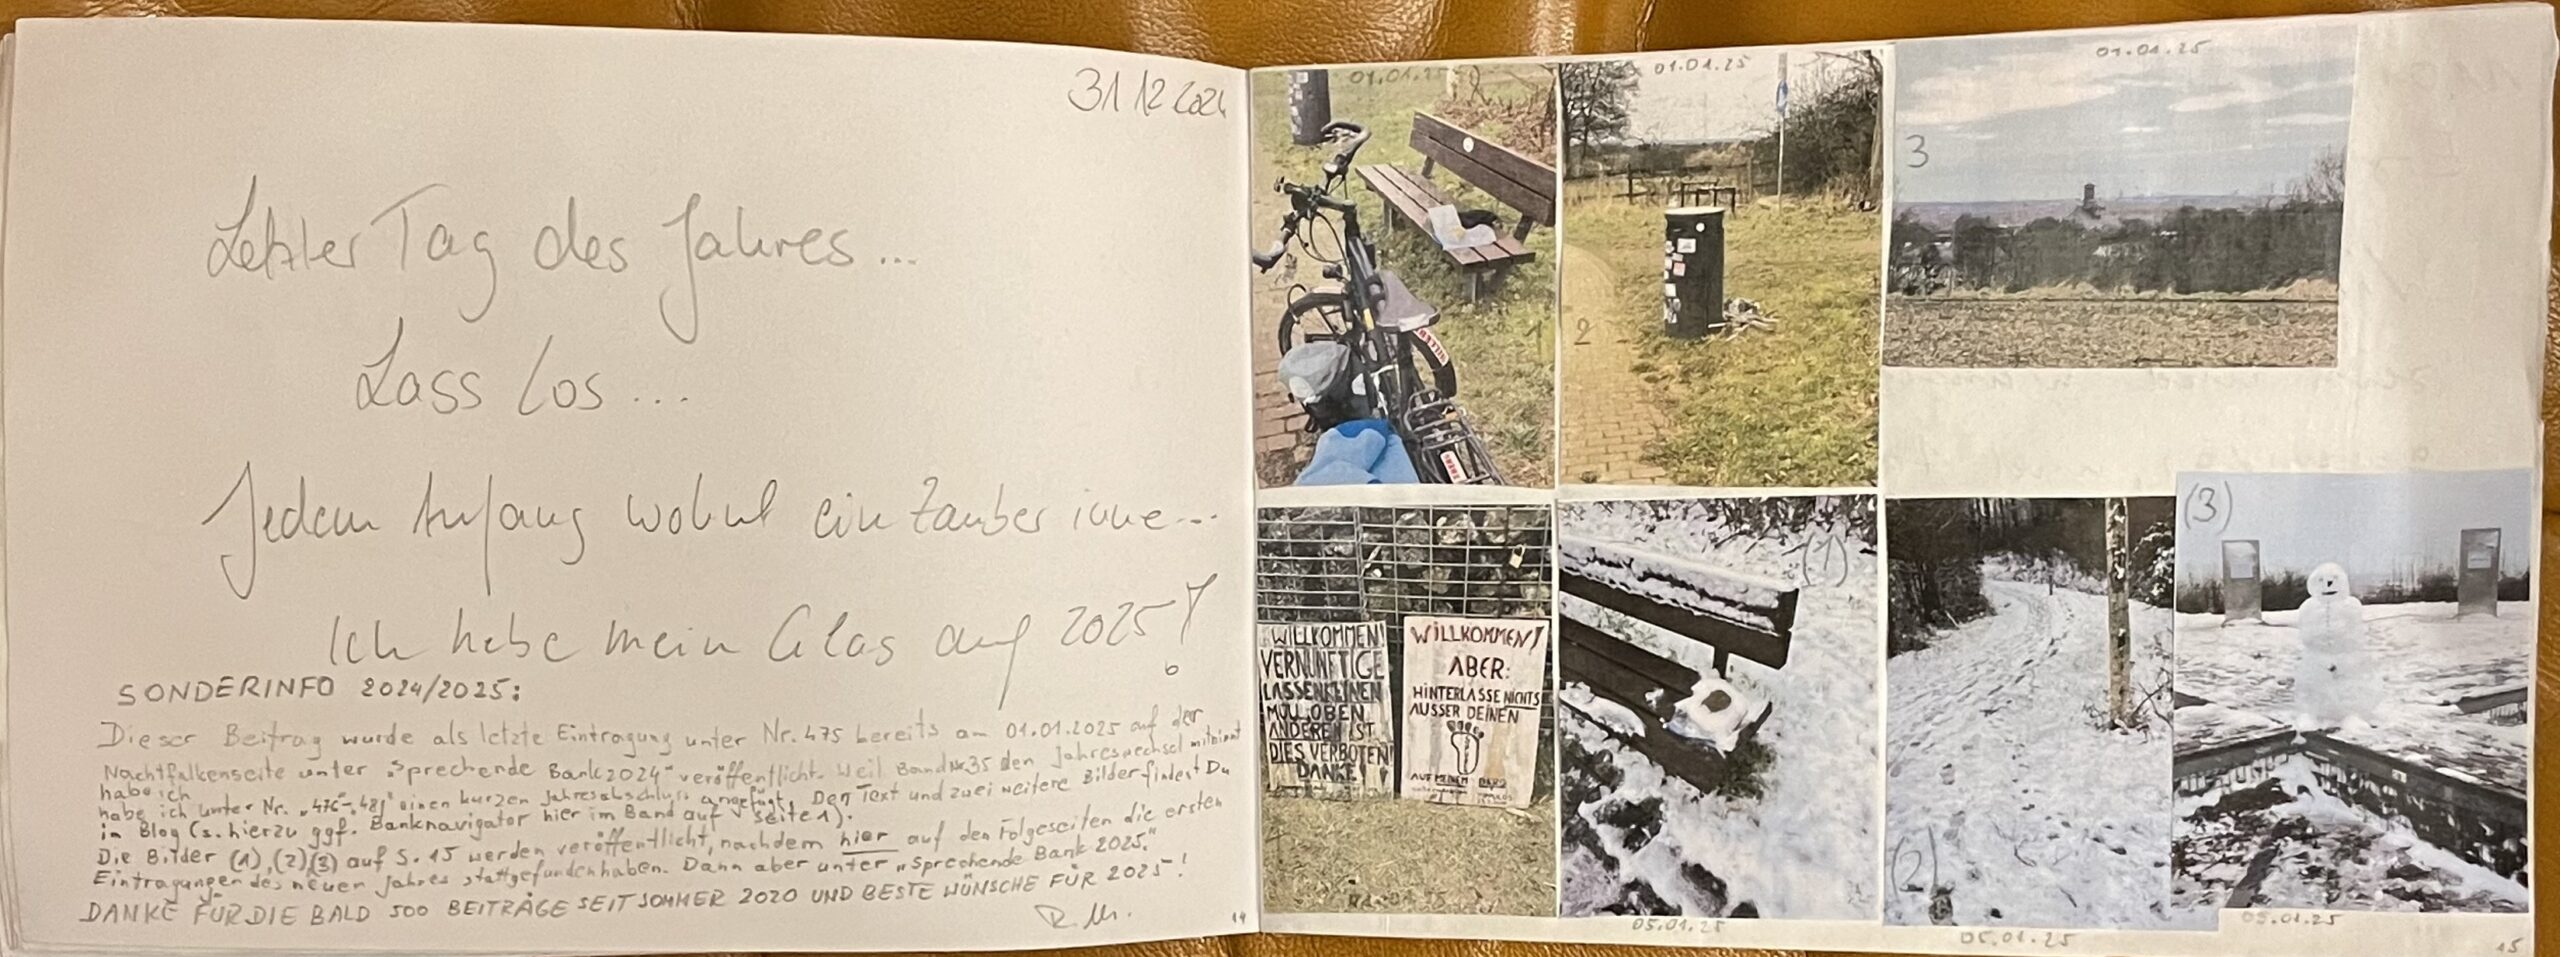 31 12 2024
Letzter Tag des Jahres...
Lass los...
Jedem Anfang wohnt ein Zauber inne...
Ich hebe mein Glas auf 2025!
SONDERINFO 2024/2025:
Dieser Beitrag wurde als letzte Eintragung unter Nr. 475 bereits am 01.01.2025 auf der
Nachtfalkenseite unter "Sprechende Bank 2024" veröffentlicht. Weil Band Nr. 35 den Jahreswechsel mitnimmt
habe ich
habe ich unter Nr. "476-481" einen kurzen Jahresabschluss angefügt. Den Text und zwei weitere Bilder findest Du
im Blog (s. hierzu ggf. Banknavigator hier im Band auf Seite 1).
Die Bilder (1), (2), (3) auf S. 15 werden veröffentlicht, nachdem hier auf den Folgeseiten die ersten
Eintragungen des neuen Jahres stattgefunden haben. Dann aber unter "Sprechende Bank 2025."
DANKE FÜR DIE BALD 500 BEITRÄGE SEIT SOMMER 2020 UND BESTE WÜNSCHE FÜR 2025!
R. M.
14
01.01.25
1
01.01.25
2
01.01.25
3
WILLKOMMEN!
VERNÜNFTIGE
LASSEN KEINEN
MÜLL OBEN
ANDEREN IST
DIES VERBOTEN!
DANKE!
WILLKOMMEN!
ABER:
HINTERLASSE NICHTS
AUSSER DEINEN
AUF MEINEM
01.01.25
(1)
05.01.25
(2)
05.01.25
(3)
05.01.25
15